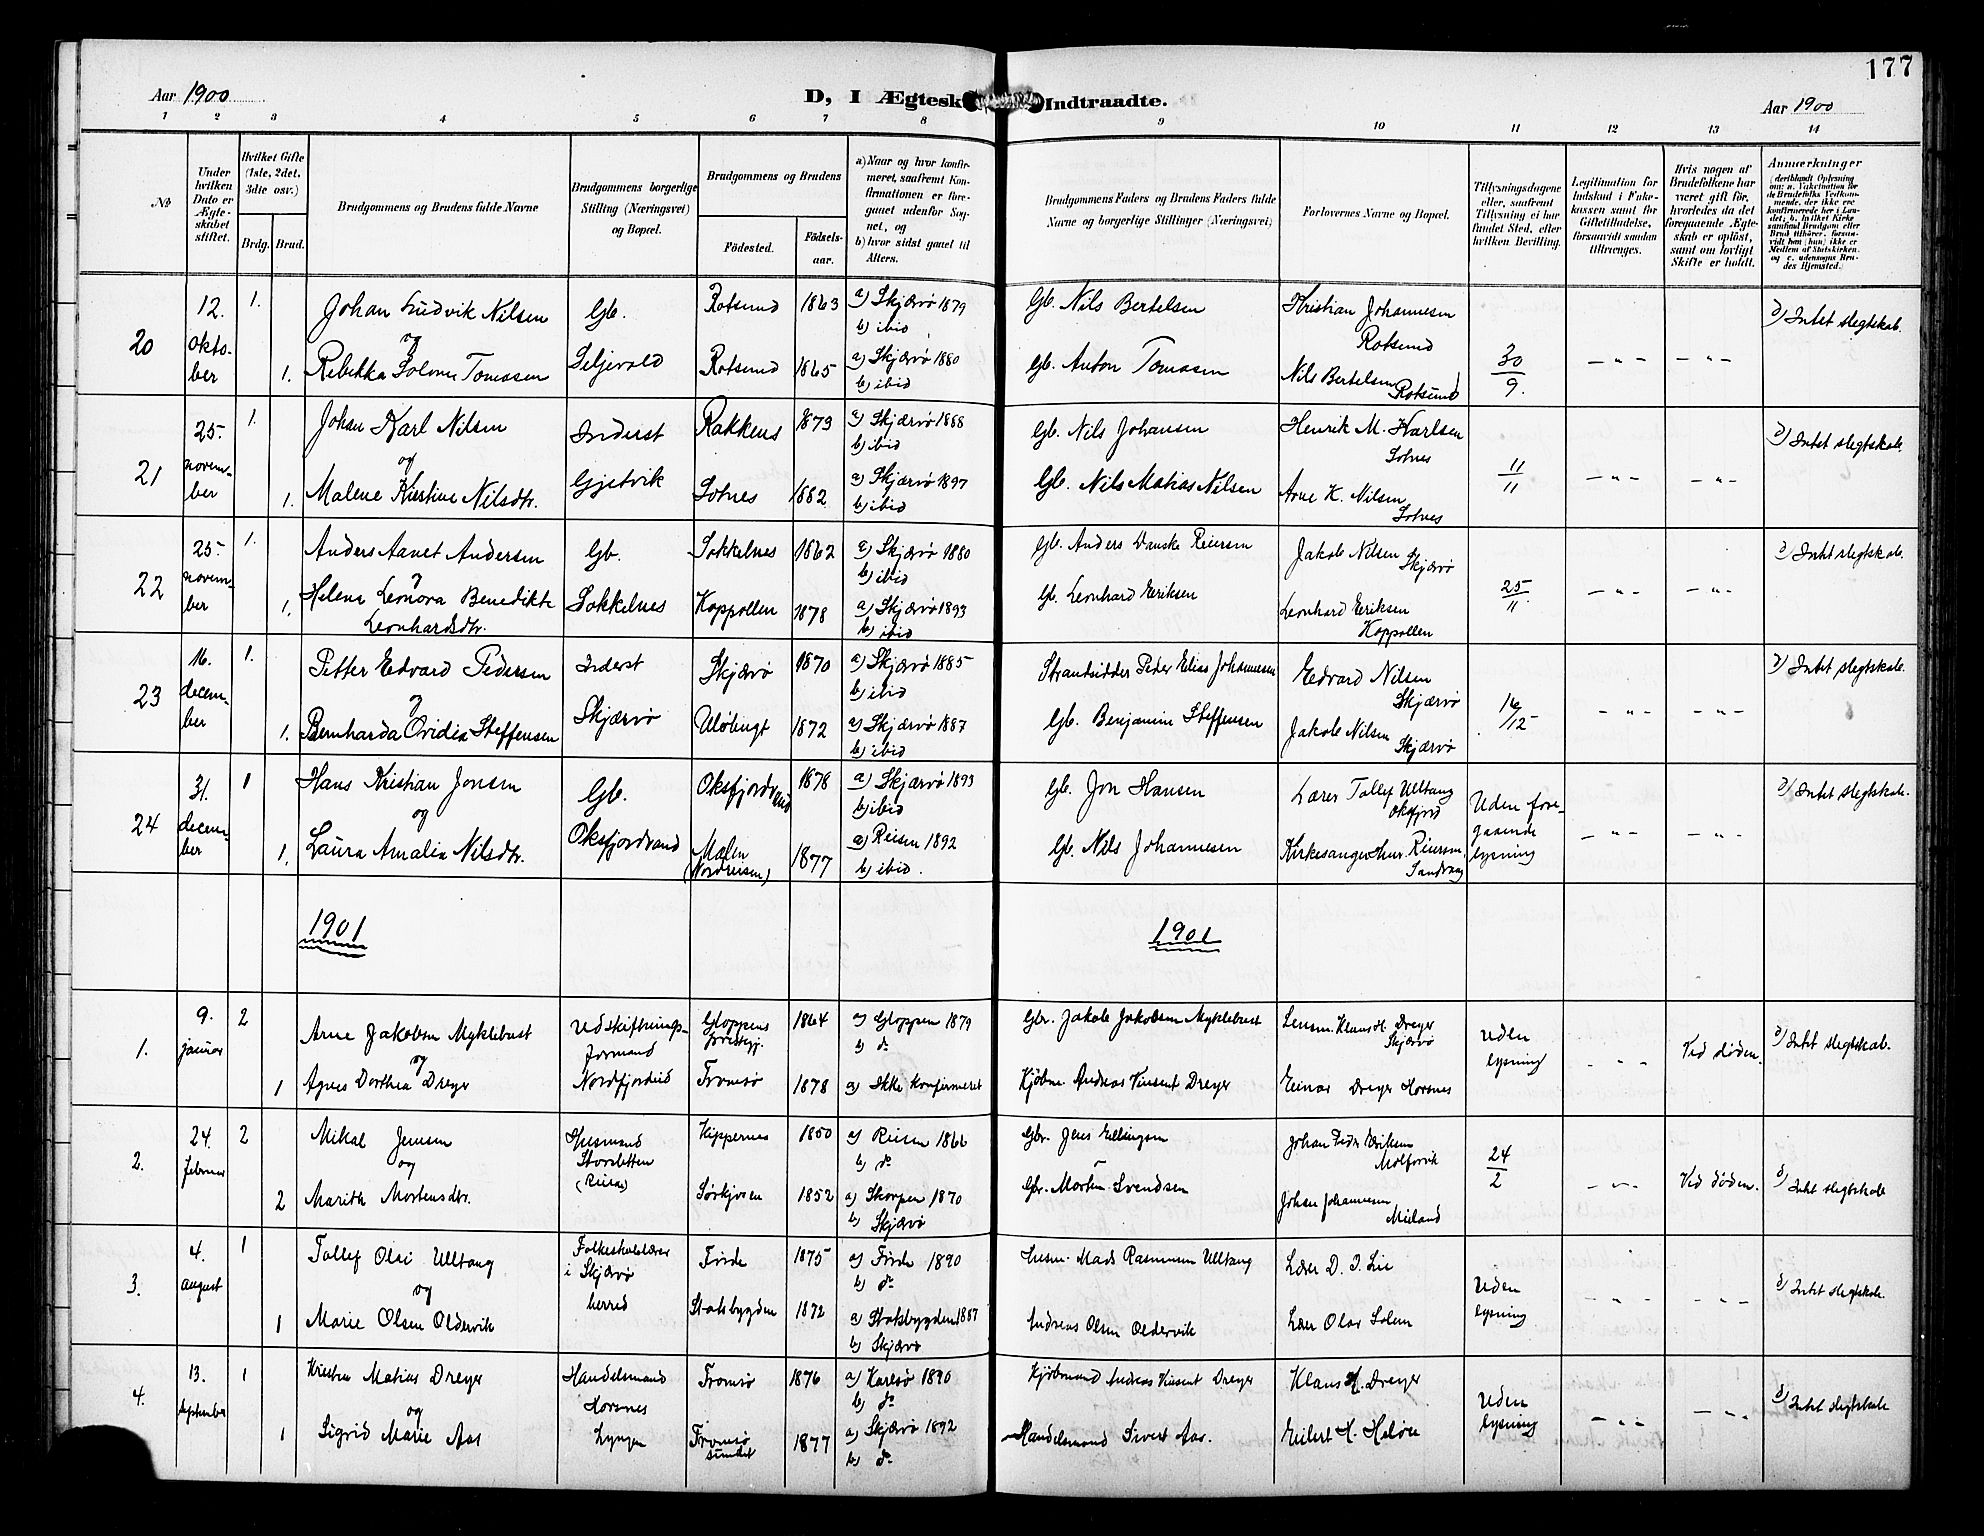 177
Aar 1900
D, I Ægtesk
Indtraadte.
Aar 1900
1 2 3 4 5 6 7 8 9 10 11 12 13 14
No
Under hvilken Dato er Ægteskabet stiftet.
Hvilket Gifte (1ste, 2det, 3die osv.)
Brdg. Brud.
Brudgommens og Brudens fulde Navne
Brudgommens borgerlige Stilling (Næringsvei) og Bopæl.
Brudgommens og Brudens
Fødested. Fødselsaar.
a) Naar og hvor konfirmeret, saafremt Konfirmationen er foregaaet udenfor Sognet, og
b) hvor sidst gaaet til Alters.
Brudgommens Faders og Brudens Faders fulde Navne og borgerlige Stillinger (Næringsvei)
Forlovernes Navne og Bopæl.
Tillysningsdagene eller, saafremt Tillysning ei har fundet Sted, efter hvilken Bevilling.
Legitimation for Indskud i Enkekassen samt for Giftetilladelse, forsaavidt saadan tiltrænges.
Hvis nogen af Brudefolkene har været gift før, hvorledes da det foregaaende Ægteskab er opløst, samt om lovligt Skifte er holdt.
Anmærkninger
(deriblandt Oplysning om: a. Vakcination for de Brudefolks Vedkommende, der ikke ere konfirmerede her i Landet; b. hvilket Kirkesamfund Brudgom eller Brud tilhører, forsaavidt han (hun) ikke er Medlem af Statskirken, og c. udensogns Brudes Hjemsted.)
20
12. oktober
1. Johan Ludvik Nilsen
og
1. Rebekka Solome Tomasen
Gb. Seljevold
Rotsund 1863 a) Skjærvø 1879 b) ibid
Rotsund 1865 a) Skjærvø 1880 b) ibid
Gb. Nils Bertelsen
Gb. Anton Tomasen
Kristian Johannesen Rotsund
Nils Bertelsen Rotsund
30/9.
— " — — " —
Intet slegtskab.
21
25. november
1. Johan Karl Nilsen
og
1. Malene Kristine Nilsdtr.
Inderst Gjetvik
Rakkenes 1873 a) Skjærvø 1888 b) ibid
Sotnes 1882 a) Skjærvø 1897 b) ibid
Gb. Nils Johansen
Gb. Nils Matias Nilsen
Henrik M. Karlsen Sotnes
Arne K. Nilsen Sotnes
11/11
— " — — " —
Intet slegtskab.
22
25. november
1. Anders Aanet Andersen
og
1. Helena Leonora Benedikte Leonhardsdtr.
Gb. Sokkelnes
Sokkelnes 1862 a) Skjærvø 1880 b) ibid
Koppollen 1878 a) Skjærvø 1893 b) ibid
Gb. Anders Danske Reiersen
Gb. Leonhard Eriksen
Jakob Nilsen Skjærvø
Leonhard Eriksen Koppollen
25/11.
— " — — " —
Intet slegtskab.
23
16. december
1. Petter Edvard Pedersen
og
1. Bernharda Ovidia Steffensen
Inderst Skjærvø
Skjærvø 1870 a) Skjærvø 1885 b) ibid
Uløbugt 1872 a) Skjærvø 1887 b) ibid
Strandsidder Peder Elias Johannesen
Gb. Benjamin Steffensen
Edvard Nilsen Skjærvø
Jakob Nilsen Skjærvø
16/12
— " — — " —
Intet slegtskab.
24
31. december
1 Hans Kristian Jonsen
og
1. Laura Amalia Nilsdtr.
Gb. Oksfjordvand
Oksfjordvand 1878 a) Skjærvø 1893 b) ibid
Malen (Nordreisen) 1877 a) Reisen 1892 b) ibid.
Gb. Jon Hansen
Gb. Nils Johannesen
Lærer Tollef Ulltang Oksfjord
Kirkesanger Reiersen, Sandvaag
Uden foregaaende lysning
— " — — " —
Intet slegtskab.
1901 1901
1.
9. januar
2 Arne Jakobsen Myklebust
og
1 Agnes Dorthea Dreyer
Udskiftningsformand Nordfjordeid
Gloppens prestegj. 1864 a) Gloppen 1879 b) do
Tromsø 1878 a) Ikke konfirmeret
Gbr. Jakob Jakobsen Myklebust
Kjøbm. Andreas Vinsent Dreyer
Lensm. Klaus H. Dreyer Skjærvø
Einar Dreyer Horsnes
Uden lysning
- " - Ved døden.
Intet slegtskab.
2.
24. februar
2 Mikal Jensen
og
2 Marith Mortensdtr.
Husmand Storsletten (Reisen)
Kippernes 1850 a) Reisen 1866 b) do
Sørkjosen 1852 a) Skorpen 1870 b) Skjærvø
Gbr. Jens Ellingsen
Gbr. Morten Svendsen
Johan Peder Eriksen
Johan Johannesen Meiland
24/2
- " - Ved døden.
Intet slegtskab
3.
4. august
1 Tollef Olai Ulltang
og
1 Marie Olsen Oldervik
Folkeskolelærer i Skjærvø herred
Førde 1875 a) Førde 1890 b) do
Stadsbygden 1872 a) Stadsbygden 1887 b) Skjærvø
Husm. Mads Rasmussen Ulltang
Andreas Olsen Oldervik
Lærer D. J. Lie
Lærer Olav Solem
Uden lysning
- " - - " -
Intet slegtskab.
4.
13. september
1 Kristen Matias Dreyer
og
1 Sigrid Marie Aas
Handelsmand Horsnes Lyngen
Tromsø 1876 a) Karlsø 1890 b) do
Tromsø sundet 1877 a) Skjærvø 1892 b) do
Kjøbmand Andreas Vinsent Dreyer
Handelsmand Sivert Aas.
Klaus H. Dreyer
Eilert H. Heløe
Uden lysning
— " — — " —
Intet slegtskab